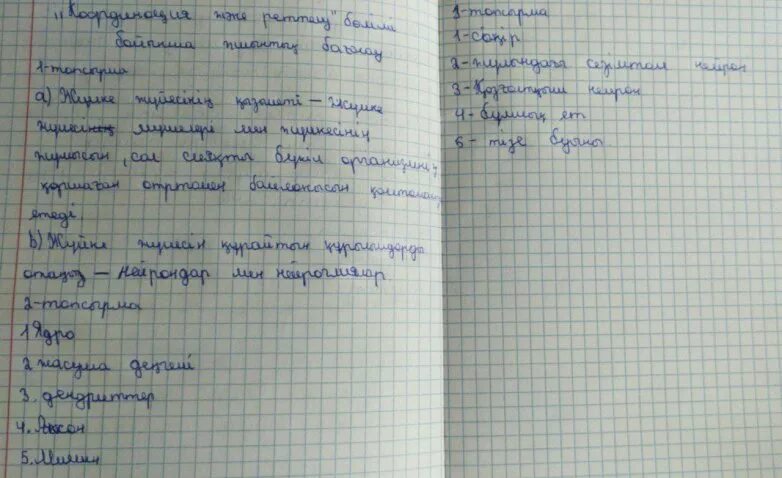 "Координация және реттеу" бөлімі
бойынша жиынтық бағалау
1-тапсырма
а) Жүйке жүйесінің қызметі – Жүйке
жүйесінің мүшелері мен жүйкесінің
жұмысын, сол сияқты бүкіл организмнің
қоршаған ортамен байланысын қамтамасыз
етеді.
b) Жүйке жүйесін құрайтын құрылымдарды
атаңыз – Нейрондар мен нейроглиялар
2-тапсырма
1 Ядро
2 жасуша денесі
3. дендриттер
4. Аксон
5. Миелин
3-тапсырма
1-сіңір
2-жұлындағы сезімтал нейрон
3-Қозғалтқыш нейрон
4-бұлшық ет
5-тізе буыны